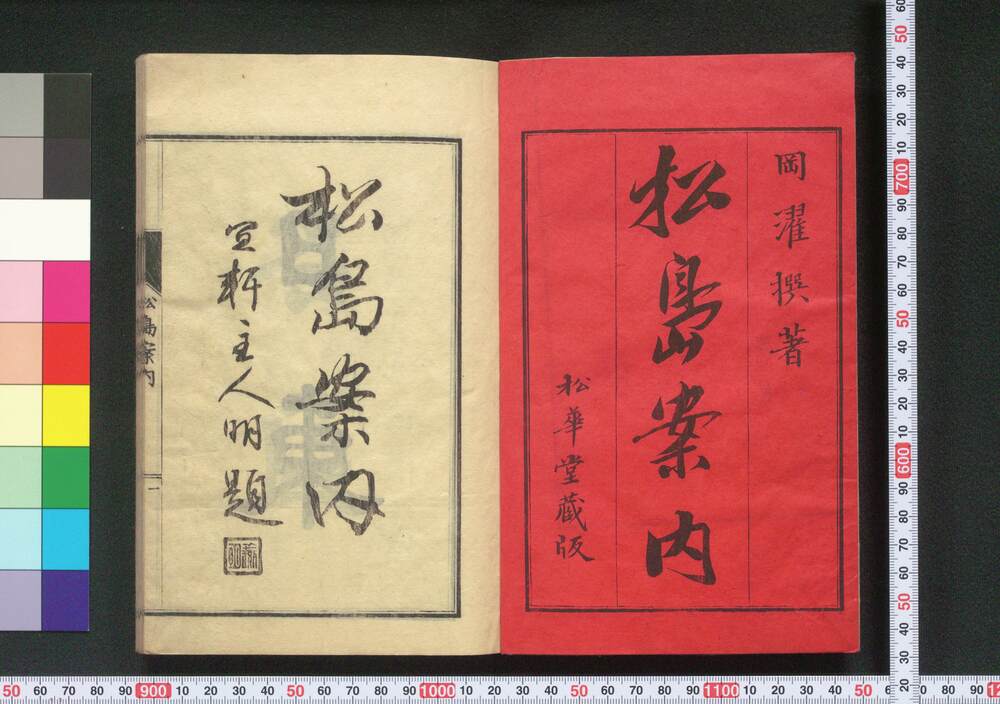 岡濯撰著
松島案内
松華堂蔵版
松島案内
宜軒主人明題
松島案内
一
50 60 70 80 90 900 10 20 30 40 50 60 70 80 90 1000 10 20 30 40 50 60 70 80 90 1100 10 20 30 40 50 60 70 80 90
60 50 40 30 20 10 700 90 80 70 60 50 40 30 20 10 600 90 80 70 60 50 40 30 20